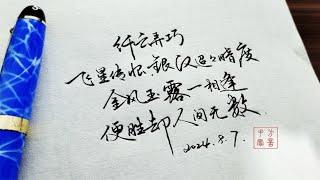 纤云弄巧
飞星传恨.银汉迢迢暗度
金风玉露一相逢
便胜却人间无数.
2024.8.7.